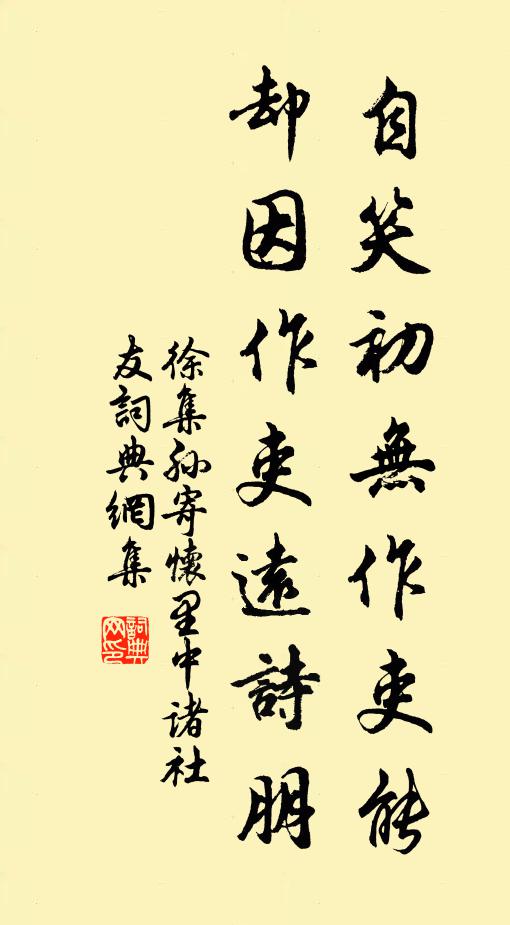 自笑初無作吏能
却因作吏遠詩朋
徐集孙寄懷里中诸社
友詞典網集
詞典
网印